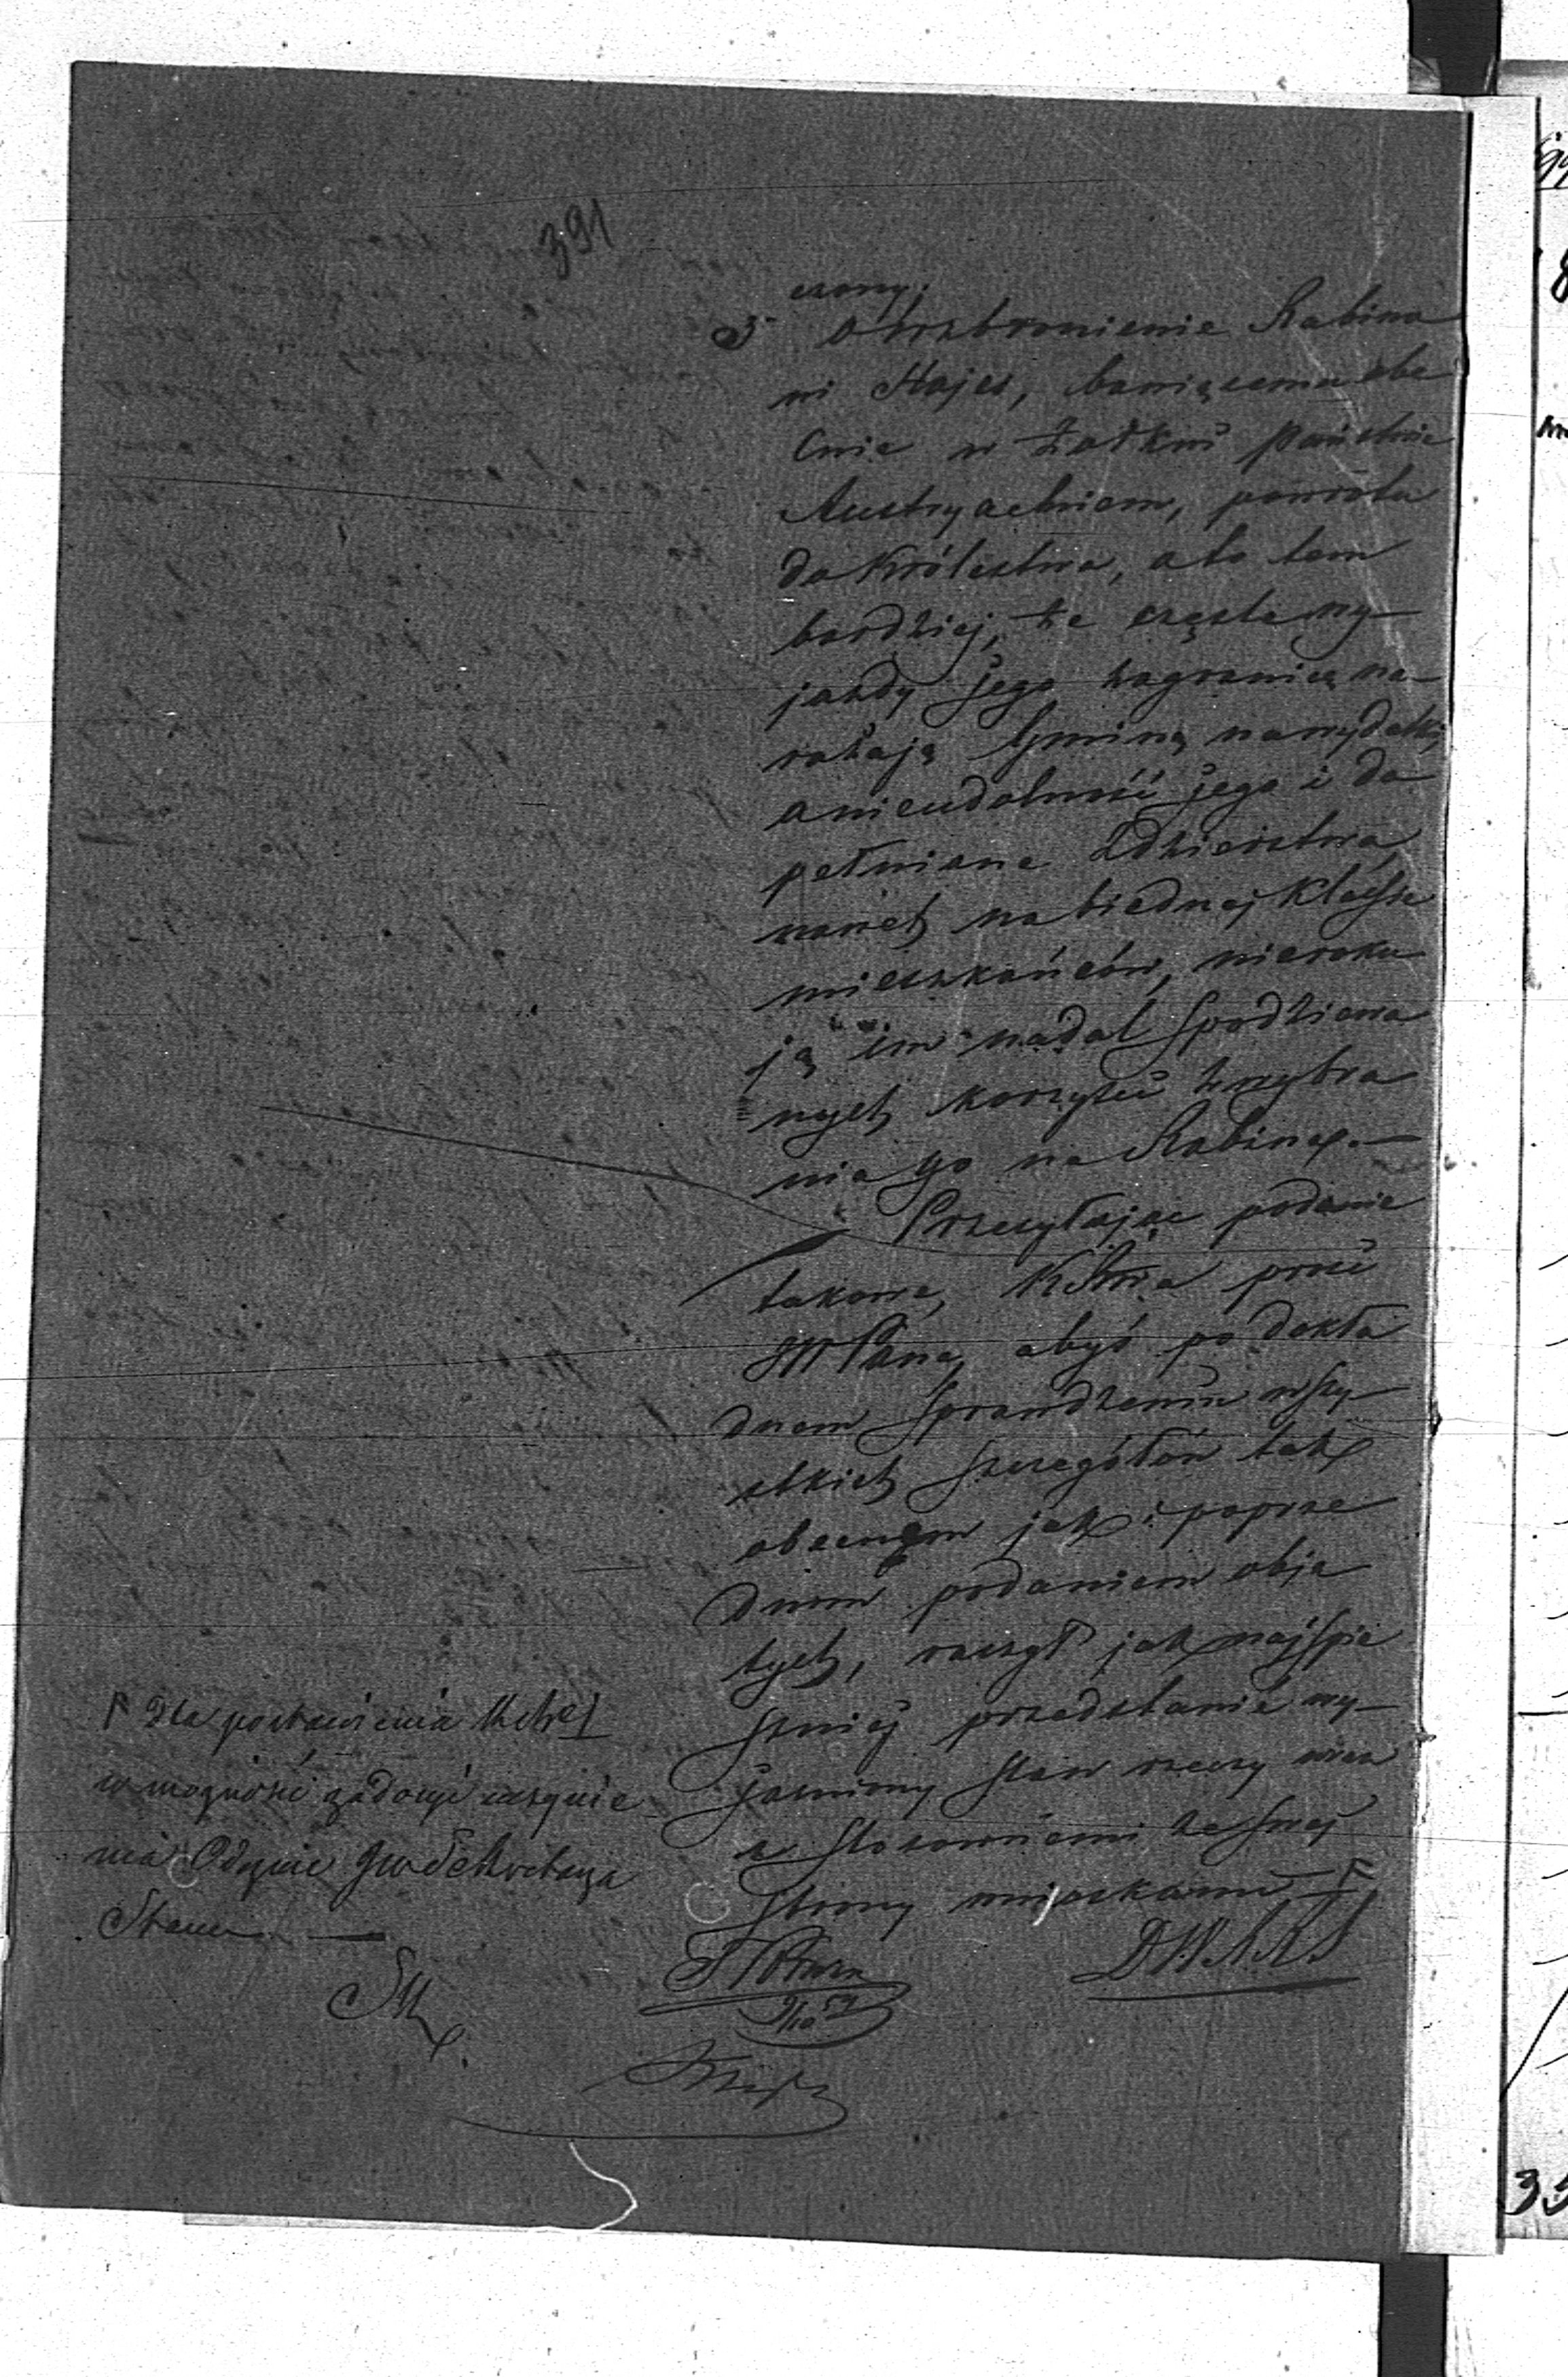 391
czony;
3 o wzbronienie Rabino
wi Hajes, bawiącemu obe
cnie w Żołkwi państwie
Austryackiem, powrotu
do Królestwa, a to tem
bardziej, że częste wy-
jazdy jego zagranicę na-
rażają Gminę na wydatki,
a nieudolność jego i do
pełniane zdzierstwa,
nawet na biednej klassie
mieszkańców, nieroku
ją im nadal spodziewa
nych korzyści z wybra
nia go na Rabina.—
Przesyłając podanie
takowe, prosi
JW Pana, abyś po dokła
dnem sprawdzeniu wszy-
stkich szczegółów tak
obecnem jak i poprze
dniem podaniem obję
tych, raczył jak najspie
szniej przedstawić wy-
jaśniony stan rzeczy wraz
z stosownemi ze swej
strony wnioskami. — F
F Dla postawienia
w możności zadosyć uczynie
nia Odezwie JW Sekretarza
Stanu —